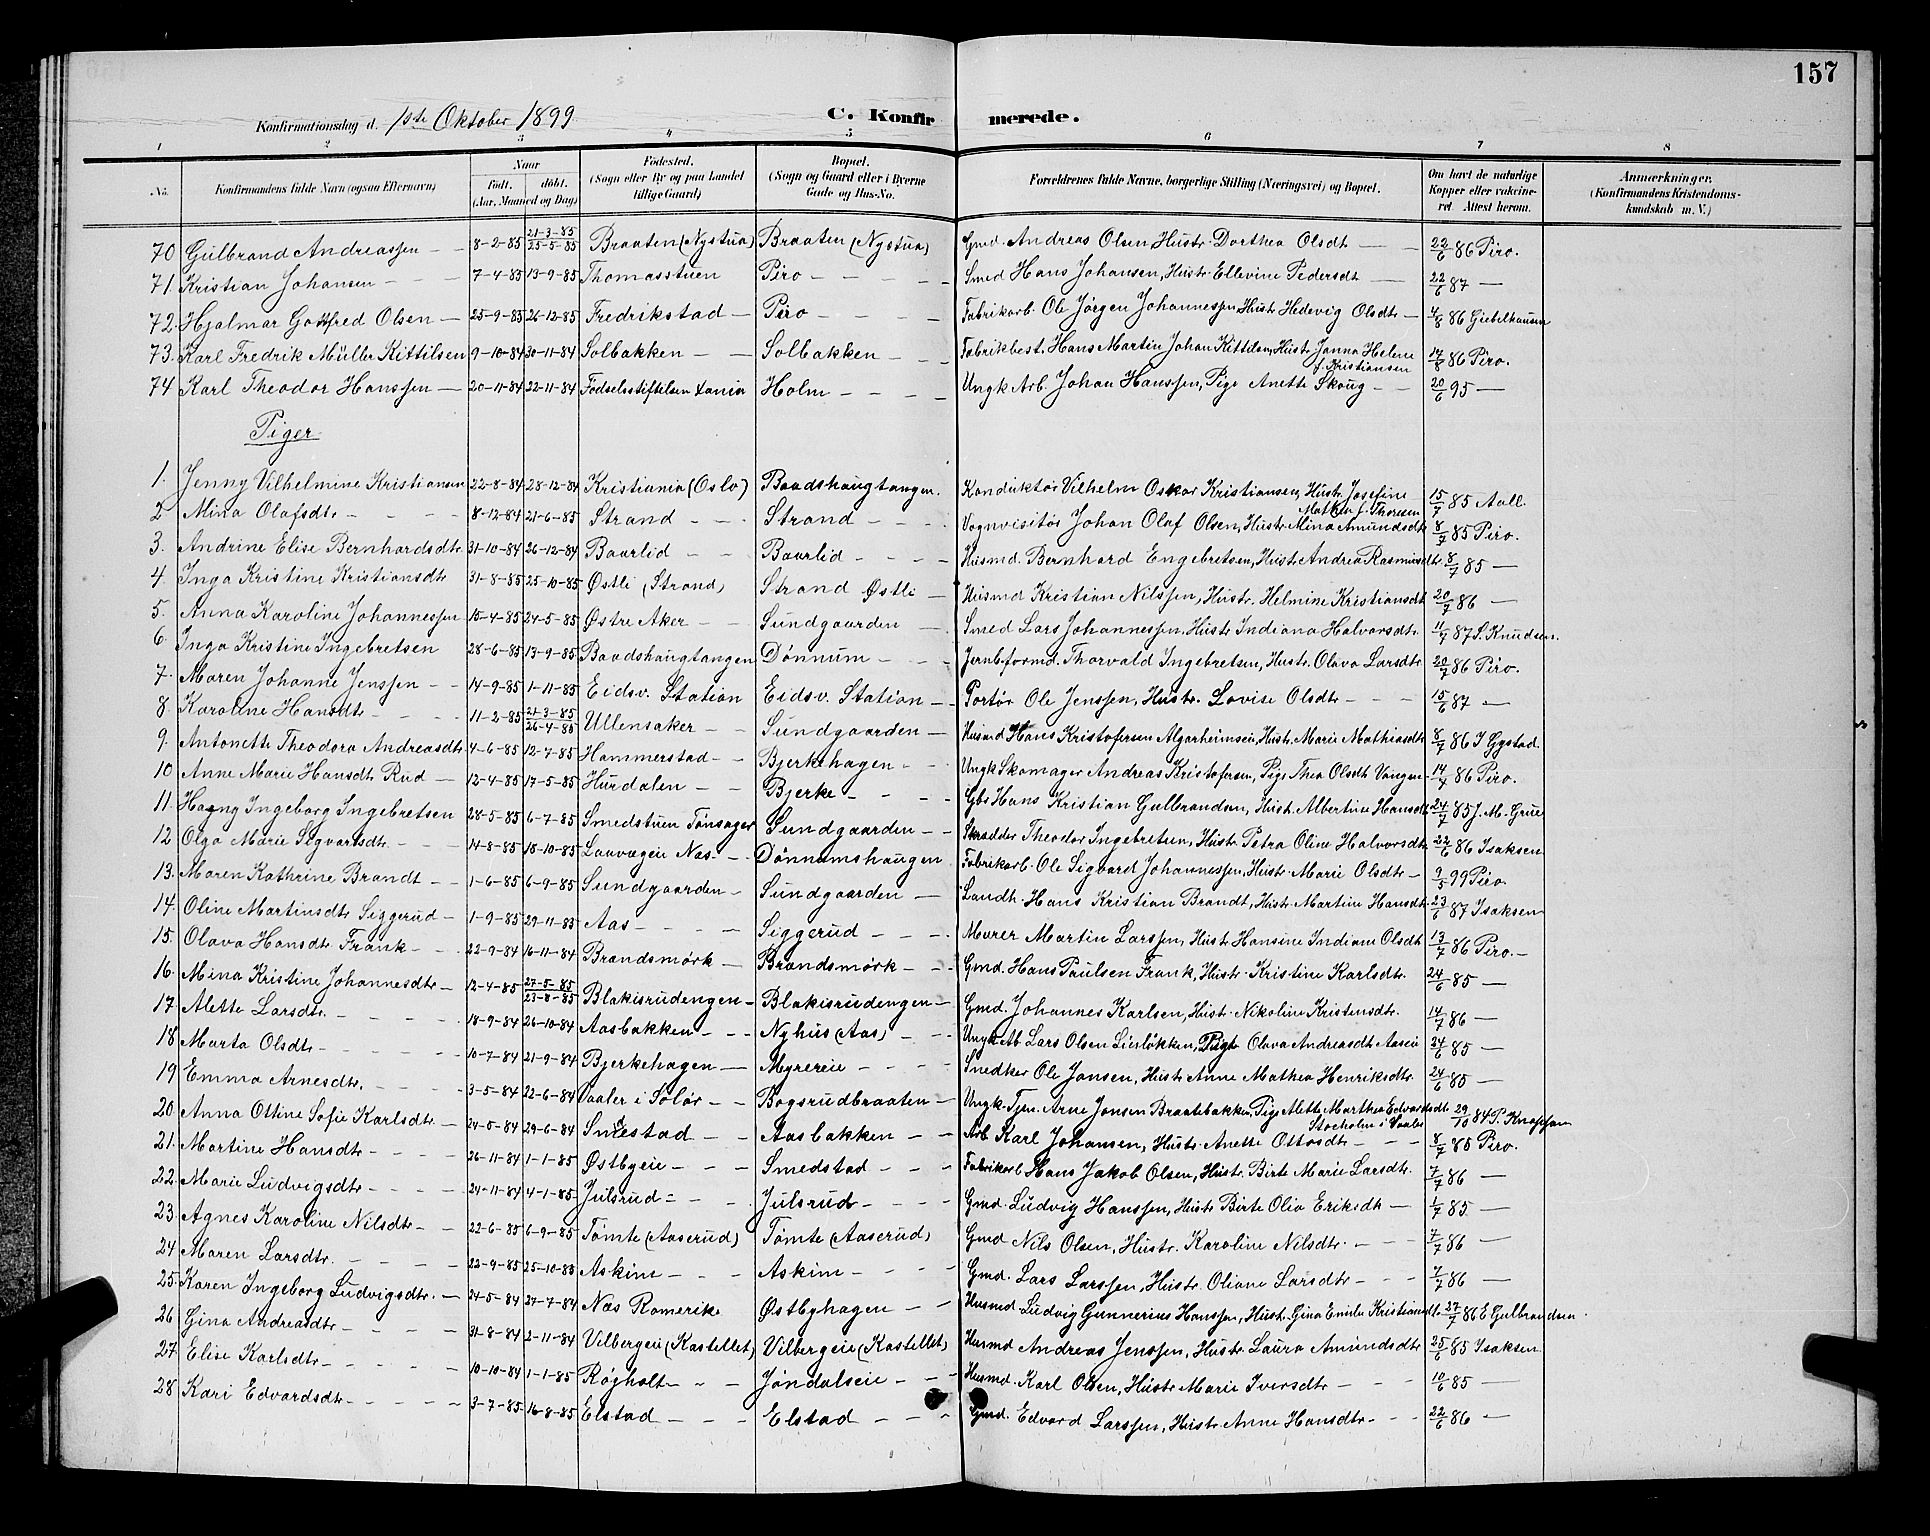 157
Konfirmationsdag d. 1ste Oktober 1899 C. Konfirmerede.
1 2 3 4 5 6 7 8
No. Konfirmandens fulde Navn (ogsaa Efternavn) Naar født. døbt. (Aar, Maaned og Dag) Fødested. (Sogn eller By og paa Landet tillige Gaard) Bopæl. (Sogn og Gaard eller i Byerne Gade og Hus-No. Forældrenes fulde Navne, borgerlige Stilling (Næringsvei) og Bopæl. Om havt de naturlige Kopper eller vaccineret. Attest herom. Anmærkninger. (Konfirmandens Kristendomskundskab m. V.)
70 Gulbrand Andreassen — 8-2-85 21-3-85 25-5-85 Braaten (Nystua) Braaten (Nystua) Gmd. Andreas Olsen Hustr. Dorthea Olsdt — 22/6 86 Piro.
71. Kristian Johansen - - - 7-4-85 13-9-85 Thomasstuen Piro - - - Smed Hans Johansen, Hustr. Ellevine Pedersdt — 22/6 87 —
72. Hjalmar Gottfred Olsen — 25-9-85 26-12-85 Fredrikstad — Piro - - - Fabrikarb. Ole Jørgen Johannessen Hustr Hedevig Olsdtr — 4/8 86 Giebelhausen
73. Karl Fredrik Müller Kittilsen 9-10-84 30-11-84 Solbakken — — Solbakken - - Fabrikbest. Hans Martin Johan Kittilsen, Hustr. Janna Helene f. Kristiansen 14/8 86 Piro.
74 Karl Theodor Hanssen — 20-11-84 22-11-84 Fødselsstiftelsen Xania Holm - - - Ungk Arb. Johan Hanssen, Pige Anette Skoug - - 20/6 95 —
Piger
1. Jenny Vilhelmine Kristiansen 22-8-84 28-12-84 Kristiania (Oslo) Baadshaugtangen. Konduktør Vilhelm Oskar Kristiansen, Hustr. Josefine f. Thoresen 15/7 85 Aall.
2 Mina Olafsdtr. - - - 8-12-84 21-6-85 Strand - - Strand - - - Vognvisitør Johan Olaf Olsen, Hustr. Mina Amundsdtr 8/7 85 Piro.
3. Andrine Elise Bernhardsdtr 31-10-84 26-12-84 Baarlid - - Baarlid - - - Husmd Bernhard Engebretsen, Hustr Andrea Rasmusdtr 8/7 85 —
4. Inga Kristine Kristiansdtr 31-8-85 25-10-85 Østli (Strand) Strand Østli — Husmd Kristian Nilssen, Hustr. Helmine Kristiansdt 20/7 86 —
5. Anna Karoline Johannessen 15-4-85 24-5-85 Østre Aker - - Sundgaarden — Smed Lars Johannessen, Hustr Indiana Halvorsdtr 11/7 87 S. Knudsen.
6. Inga Kristine Ingebretsen 28-6-85 13-9-85 Baadshaugtangen Dønnum - - - Jernbformd. Thorvald Ingebretsen, Hustr. Olava Larsdtr 20/7 86 Piro.
7. Maren Johanne Jenssen - - 14-9-85 1-11-85 Eidsv. Station Eidsv. Station — Portør Ole Jenssen, Hustr. Lovise Olsdtr - - - 15/6 87 —
8. Karoline Hansdtr - - - 11-2-85 21-3-85 26-4-85 Ullensaker - - Sundgaarden — Husmd Hans Kristofersen Algarheimseie, Hustr. Marie Mathiasdtr 8/7 86 J Gystad.
9. Antonette Theodora Andreasdtr 4-6-85 12-7-85 Hammerstad - - Bjerkehagen - - Ungk Skomager Andreas Kristofersen, Pige Thea Olsdt Vangen 14/7 86 Piro.
10 Anne Marie Hansdt Rud — 12-4-85 17-5-85 Hurdalen - - Bjerke - - - Gbr Hans Kristian Gulbrandsen, Hustr. Albertine Hansdt 24/7 85 J. M. Grue
11. Hagny Ingeborg Ingebretsen 28-5-85 6-7-85 Smedstuen Tønsager Sundgaarden - - Skrædder Theodor Ingebretsen, Hustr Petra Oline Halvorsdtr 22/6 86 Isaksen
12 Olga Marie Sigvartsdtr - - - 14-8-85 18-10-85 Lauvægeie Næs - - Dønnumshaugen Fabrikarb. Ole Sigvardt Johannessen, Hustr. Marie Olsdtr — 9/5 99 Piro.
13. Maren Kathrine Brandt - - 1-6-85 6-9-85 Sundgaarden — Sundgaarden - - Landh. Hans Kristian Brandt, Hustr. Martine Hansdt 23/6 87 Isaksen
14. Oline Martinsdtr Siggerud - 1-9-85 29-11-85 Aas - - - - Siggerud - - - Murer Martin Larssen, Hustr. Hansine Indiane Olsdt 13/7 86 Piro.—
15. Olava Hansdtr Frank - - 22-9-84 16-11-84 Brandsmørk — Brandsmørk - - Gmd. Hans Paulsen Frank, Hustr. Kristine Karlsdtr. 24/6 85 —
16. Mina Kristine Johannesdtr — 12-4-85 27-5-85 23-8-85 Blakisrudengen - Blakisrudengen — Gmd. Johannes Karlsen, Hustr. Nikoline Kristensdtr. 14/7 86 —
17 Alette Larsdtr. - - - - 18-9-84 26-10-84 Aasbakken - - Nyhus (Aas) - - Ungk Arb Lars Olsen Lierløkken, Pige Olava Andreasdt Aaseie 24/6 85 —
18 Marta Olsdtr - - - - 10-7-84 21-9-84 Bjerkehagen — Myrereie - - - Snedker Ole Jansen, Hustr Anne Mathea Henriksdtr. 24/6 85 —
19 Emma Arnesdtr. - - - 3-5-84 22-6-84 Vaaler i Solør — Bogsrudbraaten — Ungk. Tjen. Arne Jonsen Braatebakken, Pige Alette Marthea Edvardsdtr Stocholm i Vaaler 29/10 84 P. Knappan
20. Anna Ottine Sofie Karlsdtr - 24-5-84 29-6-84 Smestad - - Aasbakken - - Arb. Karl Johansen, Hustr. Anette Ottosdt - - - 8/7 85 Piro.
21. Martine Hansdtr - - - 26-11-84 1-1-85 Østbyeie - - - Smedstad - - - Fabrikarb Hans Jakob Olsen, Hustr. Birte Marie Larsdtr. 7/7 86 —
22. Marie Ludvigsdtr - - - 24-11-84 4-1-85 Julsrud - - - Julsrud - - - Gmd. Ludvig Hanssen, Hustr Birte Olia Eriksdt - - 1/7 85 —
23. Agnes Karoline Nilsdtr - - 22-6-85 6-9-85 Tømte (Aaserud) Tømte (Aaserud) Gmd Nils Olsen, Hustr. Karoline Nilsdtr. - - - 7/7 86 —
24 Maren Larsdtr. - - - - 22-9-85 25-10-85 Askim - - - Askim - - - Gmd. Lars Larssen, Hustr Oliane Larsdtr - - - 7/7 86 —
25. Karen Ingeborg Ludvigsdtr. — 24-5-84 27-7-84 Næs Romerike Østbyhagen - - Husmd Ludvig Gunnerius Hanssen, Hustr. Gina Emilie Kristiansdt. 27/7 86 E Gulbrandsen.
26 Gina Andreasdtr - - - 31-8-84 2-11-84 Vilbergeie (Kastellet) Vilbergeie (Kastellet) Husmd Andreas Jenssen, Hustr. Laura Amundsdtr 25/6 85 Isaksen
27. Elise Karlsdtr - - - - 10-10-84 1-1-85 Røgholt - - - Jøndalseie - - - Husmd. Karl Olsen, Hustr Marie Iversdtr - - - 10/6 85 —
28 Kari Edvardsdtr - - - - 3-7-85 16-8-85 Elstad - - - Elstad - - - Gmd. Edvard Larssen, Hustr. Anne Hansdtr - - - 22/6 86 —